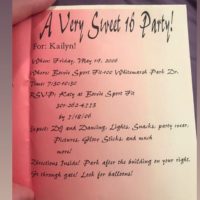 A Very Sweet 16 Party!
For: Kailyn!
When: Friday, May 19, 2006
Where: Bowie Sport Fit-100 Whitemarsh Park Dr.
Time: 7:30-10:30
RSVP: Katy at Bowie Sport Fit
by 5/18/06
Expect: DJ and Dancing, Lights, Snacks, party room,
Pictures, Glow Sticks, and much
more!
Directions Inside! Park after the building on your right.
Go through gate! Look for balloons!